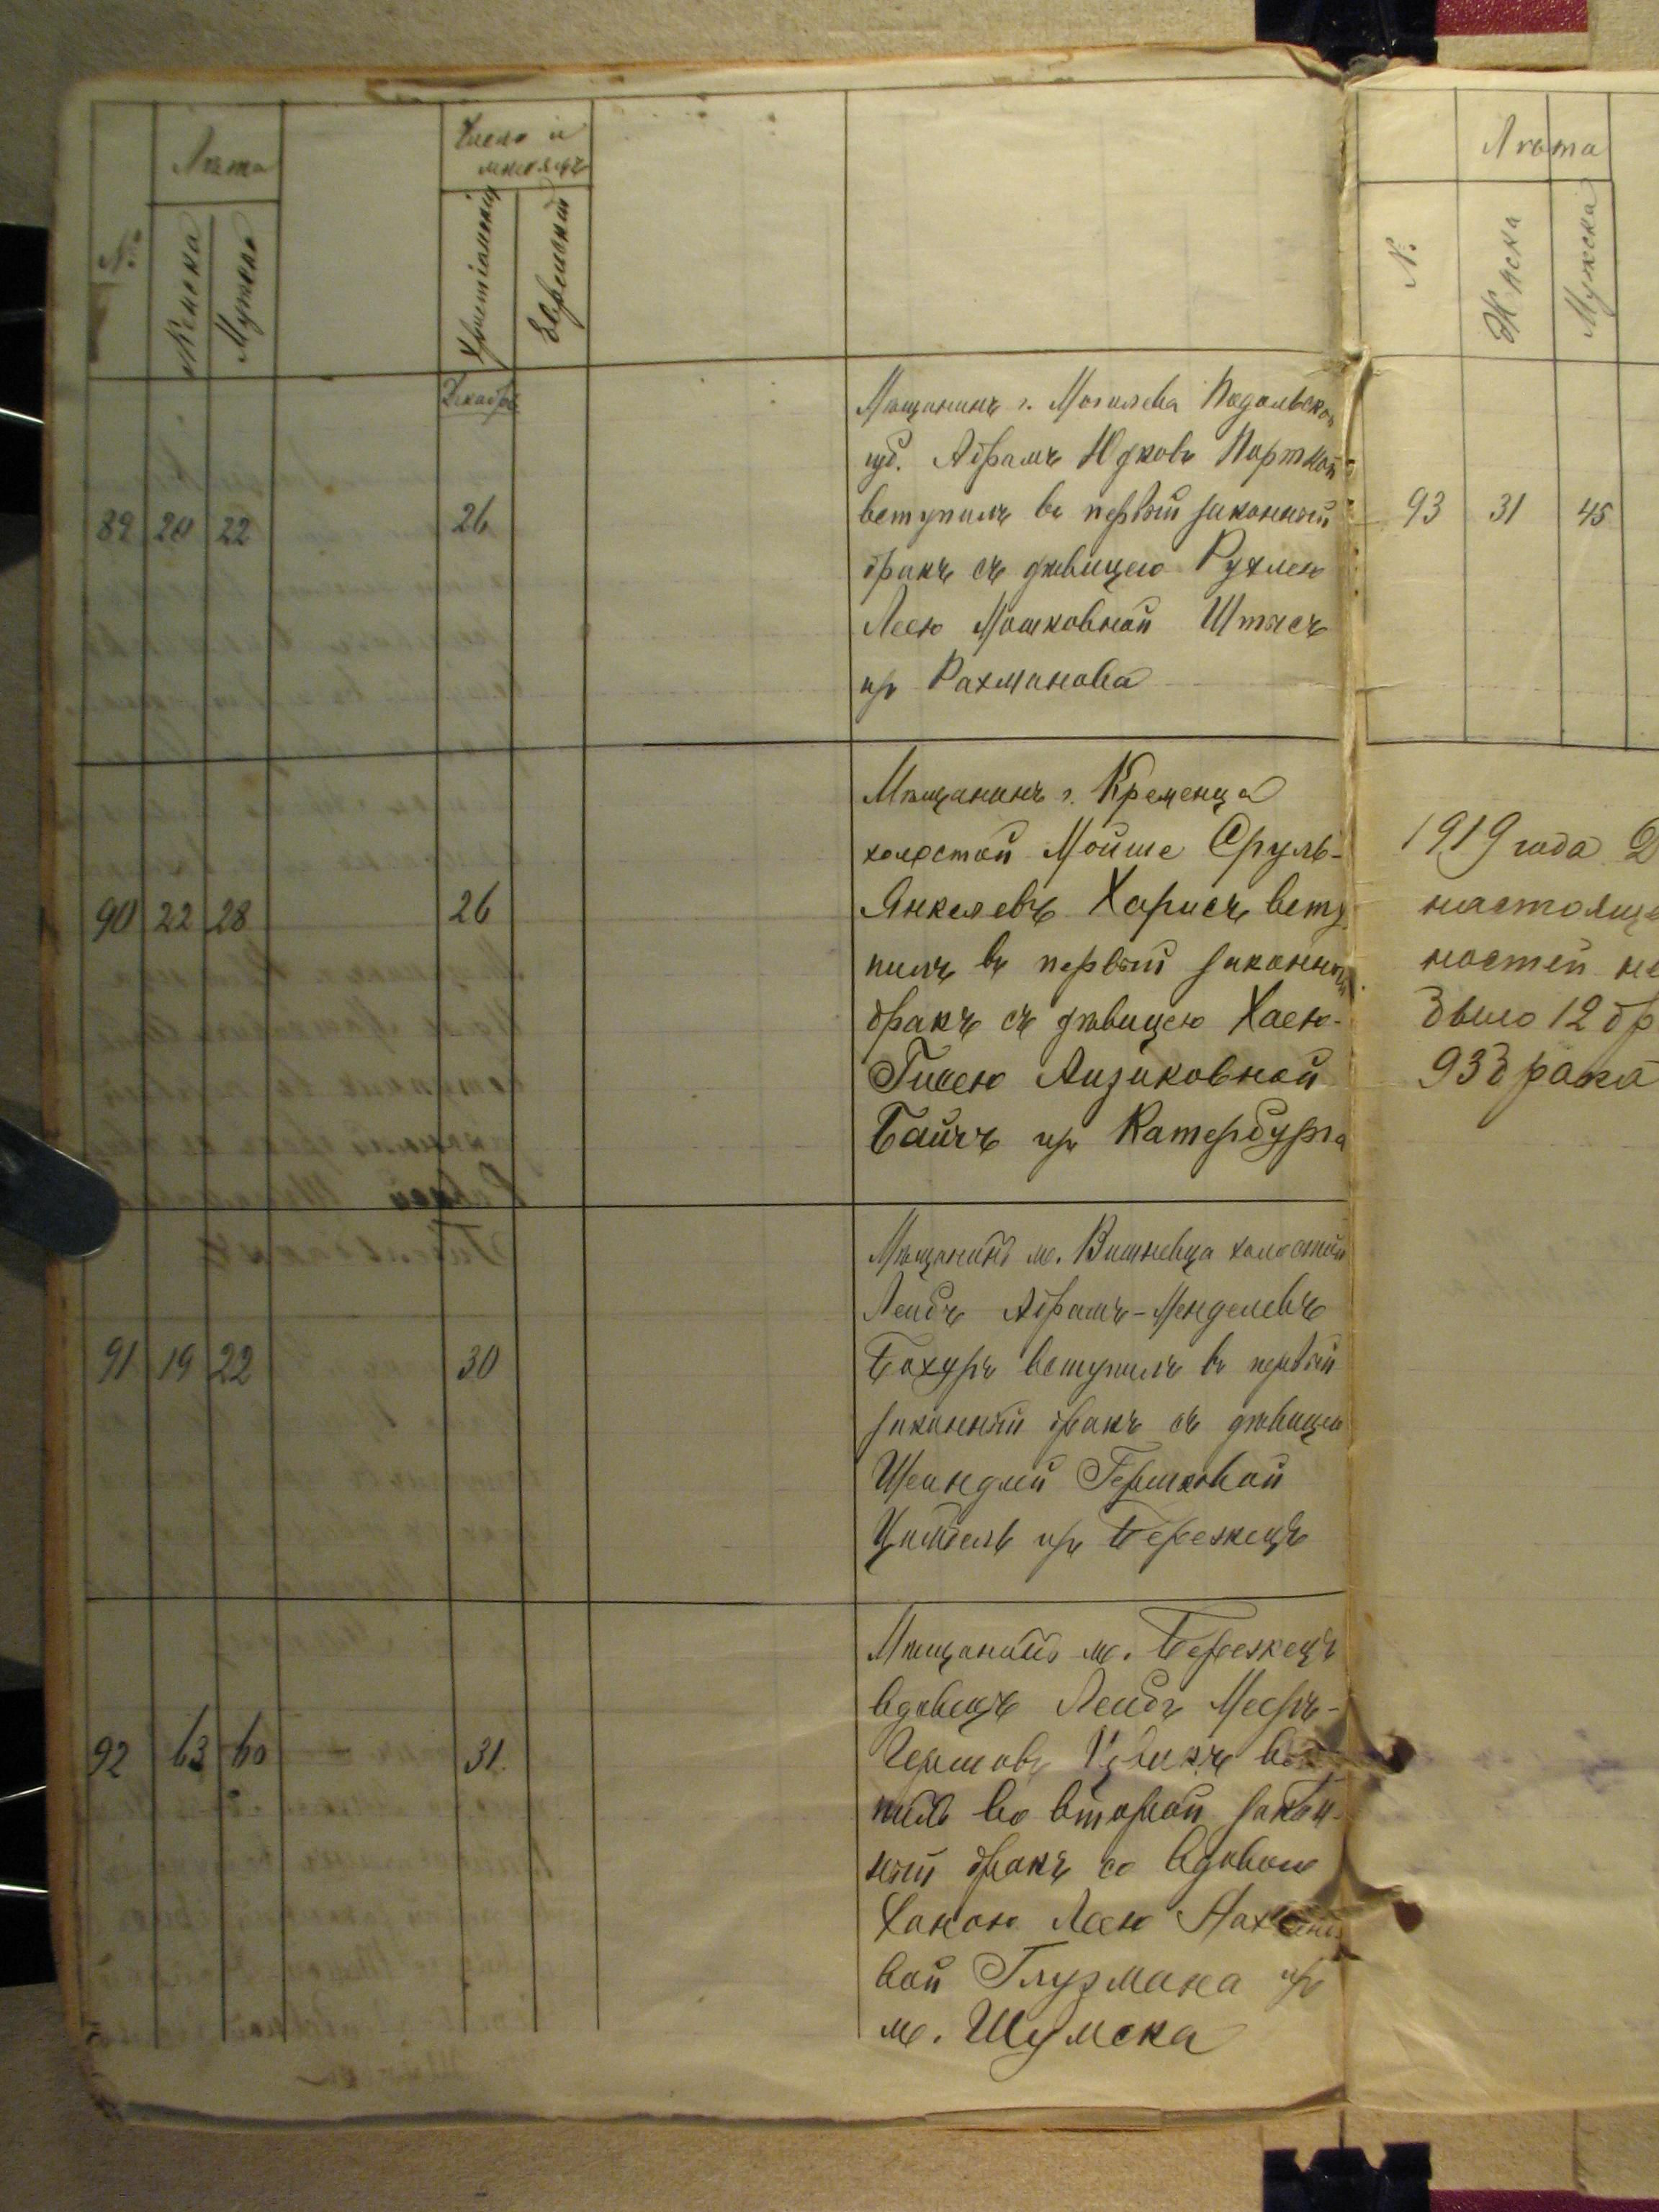 №
Лѣта
Женска
Мужска
Число и
мѣсяцъ
Христіанскій
Еврейскій
Декабрь
89 20 22 26
Мѣщанинъ г. Могилева Подольской
губ. Абрамъ Юдковъ Портной
вступилъ въ первый законный
бракъ съ дѣвицею Рухлею
Леею Мошковной Штисъ
из Рахманова
90 22 28 26
Мѣщанинъ г. Кременца
холостой Мойше Сруль-
Янкелевъ Харисъ всту
пилъ въ первый законный
бракъ съ дѣвицею Хаею-
Гисею Аизиковной
Байчъ из Катербурга
91 19 22 30
Мѣщанинъ м. Вишневца холостой
Лейбъ Абрамъ-Менделевъ
Бохуръ вступилъ въ первый
законный бракъ съ дѣвицею
Шейндлей Гершковой
из Бережецъ
92 63 60 31.
Мѣщанинъ м. Бережецъ
вдовецъ Лейбъ Мееръ-
Гершовъ
пилъ во второй закон-
ный бракъ со вдовою
Ханою Леею
вой Глузмана из
м. Шумска
№
Лѣта
Женска
Мужска
93 31 45
1919 года Д
настояще
ностей не
было 12 бр
93 брака